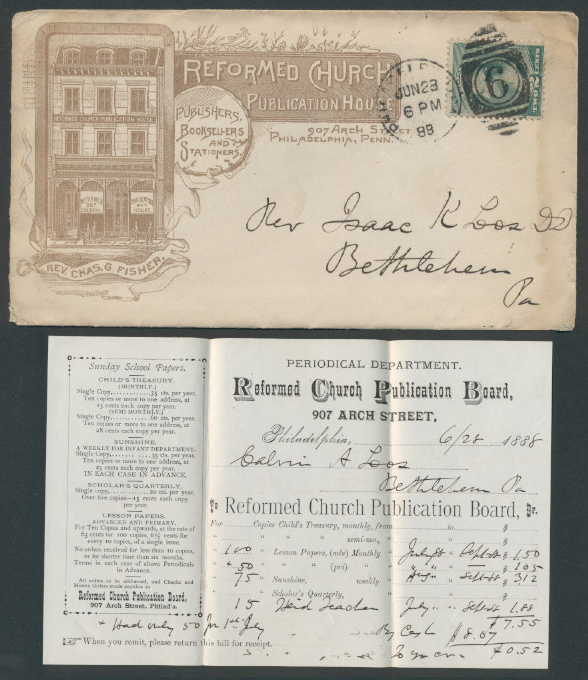 REFORMED CHURCH
PUBLICATION HOUSE
907 ARCH STREET
PHILADELPHIA, PENN.
PUBLISHERS,
BOOKSELLERS
AND
STATIONERS.
REFORMED CHURCH PUBLICATION HOUSE
REV. CHAS. G. FISHER.
JUN 28
6 PM
88
6
TWO
Rev Isaac K Loos DD
Bethlehem
Pa
Sunday School Papers.
CHILD'S TREASURY.
(MONTHLY.)
Single Copy, 35 cts. per year.
Ten copies or more to one address, at
15 cents each copy per year.
(SEMI-MONTHLY.)
Single Copy, 60 cts. per year.
Ten copies or more to one address, at
28 cents each copy per year.
SUNSHINE.
A WEEKLY FOR INFANT DEPARTMENT.
Single Copy, 35 cts. per year.
Ten copies or more to one address, at
25 cents each copy per year.
IN EACH CASE IN ADVANCE.
SCHOLAR'S QUARTERLY.
Single copy, 20 cts. per year.
Over five copies—15 cents each copy
per year.
LESSON PAPERS.
ADVANCED AND PRIMARY.
For Ten Copies and upwards, at the rate of
65 cents for 100 copies, 6½ cents for
every 10 copies, of a single issue.
No orders received for less than 10 copies,
or for shorter time than six months.
Terms in each case of above Periodicals
in Advance.
All orders to be addressed, and Checks and
Money Orders made payable to
Reformed Church Publication Board,
907 Arch Street, Philad'a.
PERIODICAL DEPARTMENT.
Reformed Church Publication Board,
907 ARCH STREET,
Philadelphia, 6/28 1888
Calvin A Loos
Bethlehem Pa
To Reformed Church Publication Board, Dr.
For Copies Child's Treasury, monthly, from to $
" " " semi-mo., " " $
100 " Lesson Papers, (adv) Monthly " July 88 " Sept 88 $ 1.50
+ 50 " " " (pri) " " " " " $ 1.05
75 " Sunshine, weekly " " Sept 88 $ 3.12
" Scholar's Quarterly, " " $
15 " July " Sept 88 1.88
$ 7.55
By Cash $ 8.07
$ 0.52
+ Had only 50 for 1st
When you remit, please return this bill for receipt.